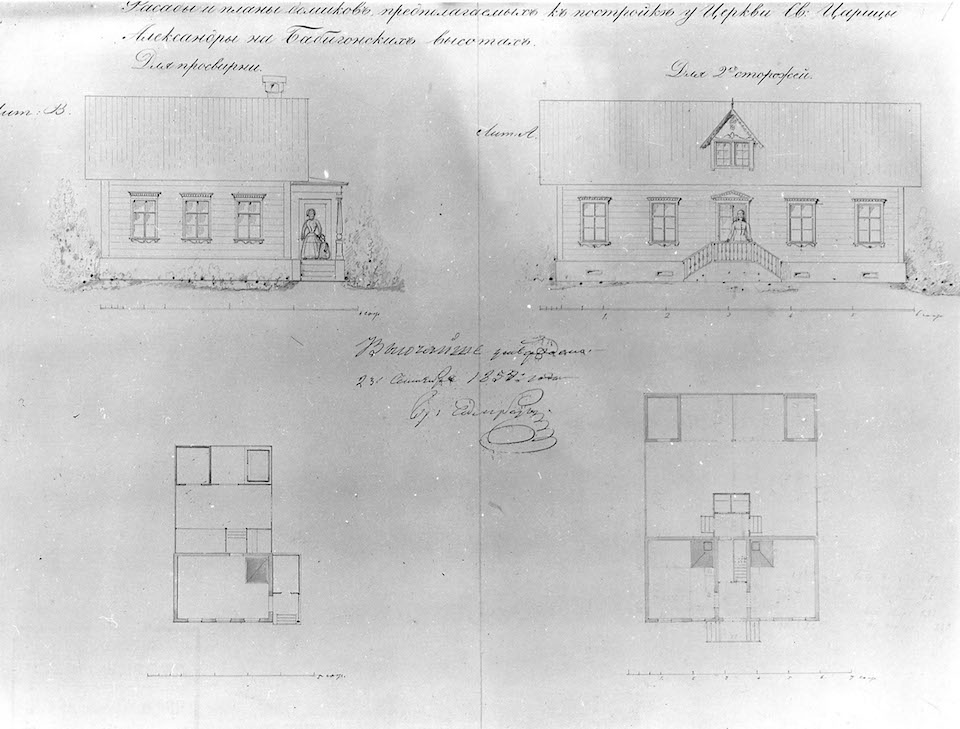 Фасады и планы домиковъ, предполагаемыхъ къ постройкѣ у Церкви Св: Царицы
Александры на Бабигонскихъ высотахъ.
Для просвирни.
Для 2хъ сторожей.
Лит: В.
Лит: А.
1 2 3 4 5 6 саж.
саж.
Высочайше утверждено
23 Сентября 1857 года
1 2 3 4 5 6 7 саж.
саж.